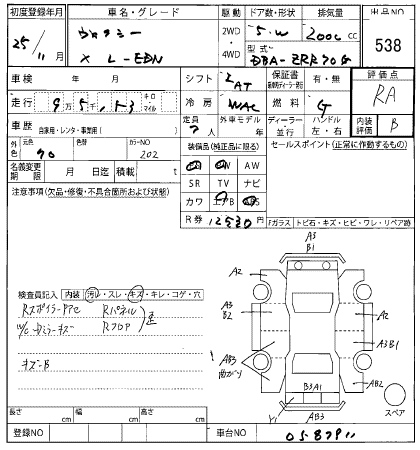 初度登録年月 車名・グレード 駆動 ドア数・形状 排気量 出品NO
25/11 X L-EDN 2WD・4WD 5・W 2000 cc 538
型式 DBA-ZRR70G
車検 年 月 シフト LAT 保証書 有・無 評価点
走行 9万5千, キロ・マイル 冷房 WAC 燃料 G RA
車歴 自家用・レンタ・事業用( ) 定員 7人 外車モデル 年 ディーラー・並行 ハンドル 左・右 内装評価 B
外色 元色 70 色替 カラーNO 202
装備品(純正品に限る) セールスポイント(正常に作動するもの)
名義変更期限 月 日迄 積載 t
AW
SR TV ナビ
注意事項(欠品・修復・不具合箇所および状態)
カワ エアB
R券 12530
ガラス トビ石・キズ・ヒビ・ワレ・リペア跡
A3
B1
A2
A3
B2
A2
A3B1
AB3
AB2
B3A1
Y1
AB3
スペア
検査員記入 内装 汚レ・スレ・キズ・キレ・コゲ・穴
Rスポイラー Rパネル
Rフロア 歪
キズ-B
長さ cm 幅 cm 高さ cm
登録NO 車台NO